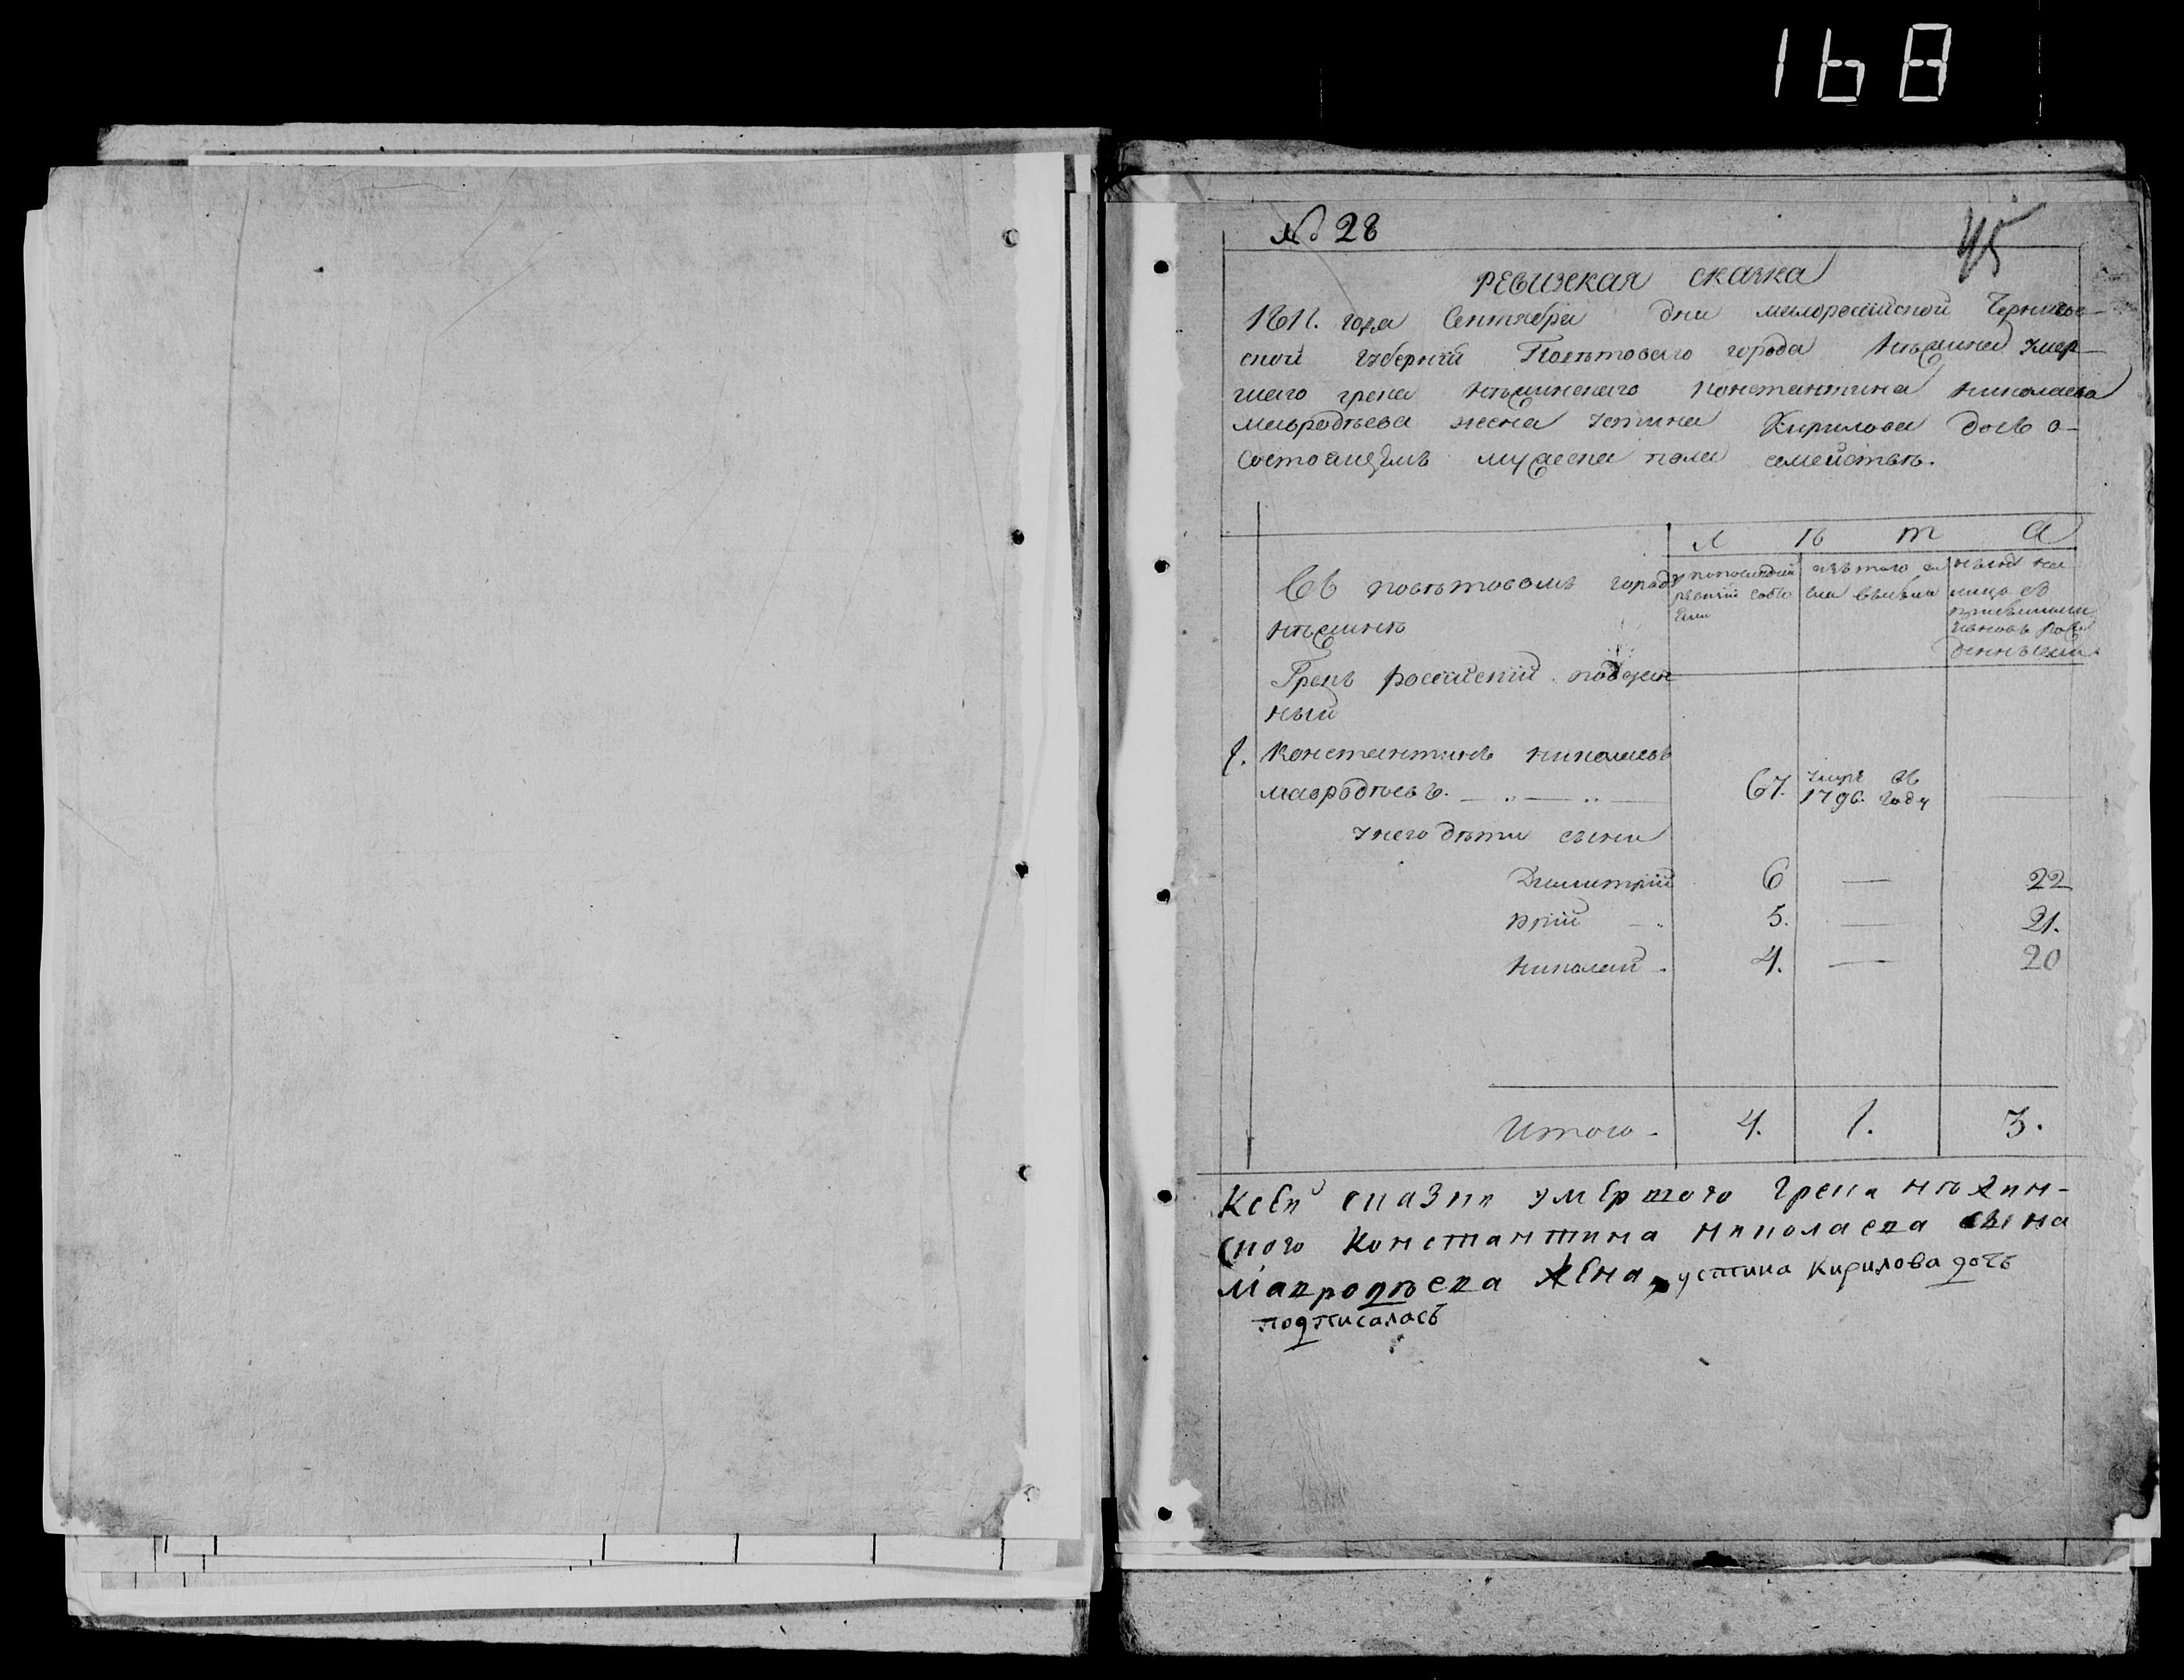 168
№ 28
45
РЕВИЗКАЯ СКАЗКА
1811. года Сентября дни малороссійской Чернигов-
ской губерніи Поветоваго города Нѣжина умер-
шаго грека нѣжинскаго Константина николаева
мавродѣева жена устина Кирилова дочь о-
состоящемъ мужеска пола семействѣ.
Л ѣ т а
Въ поветовомъ городѣ
нѣжинѣ
по последней
ревизіи состо
яли
изъ того чи
сла выбыло
ныне на
лицо съ
прибылыми
и вновь рож
денными
Грекъ россійскій поддан
ный
1. Константинъ николаевъ
мавродѣевъ. 67. умре въ
1796. году
у него дѣти сыни
Димитрій 6 — 22
юрій 5. — 21.
николай 4. — 20
Итого 4. 1. 3.
К сей сказки умершого грека нѣжин-
ского константина николаева сына
мавродѣева жена устина кирилова дочь
подписалась